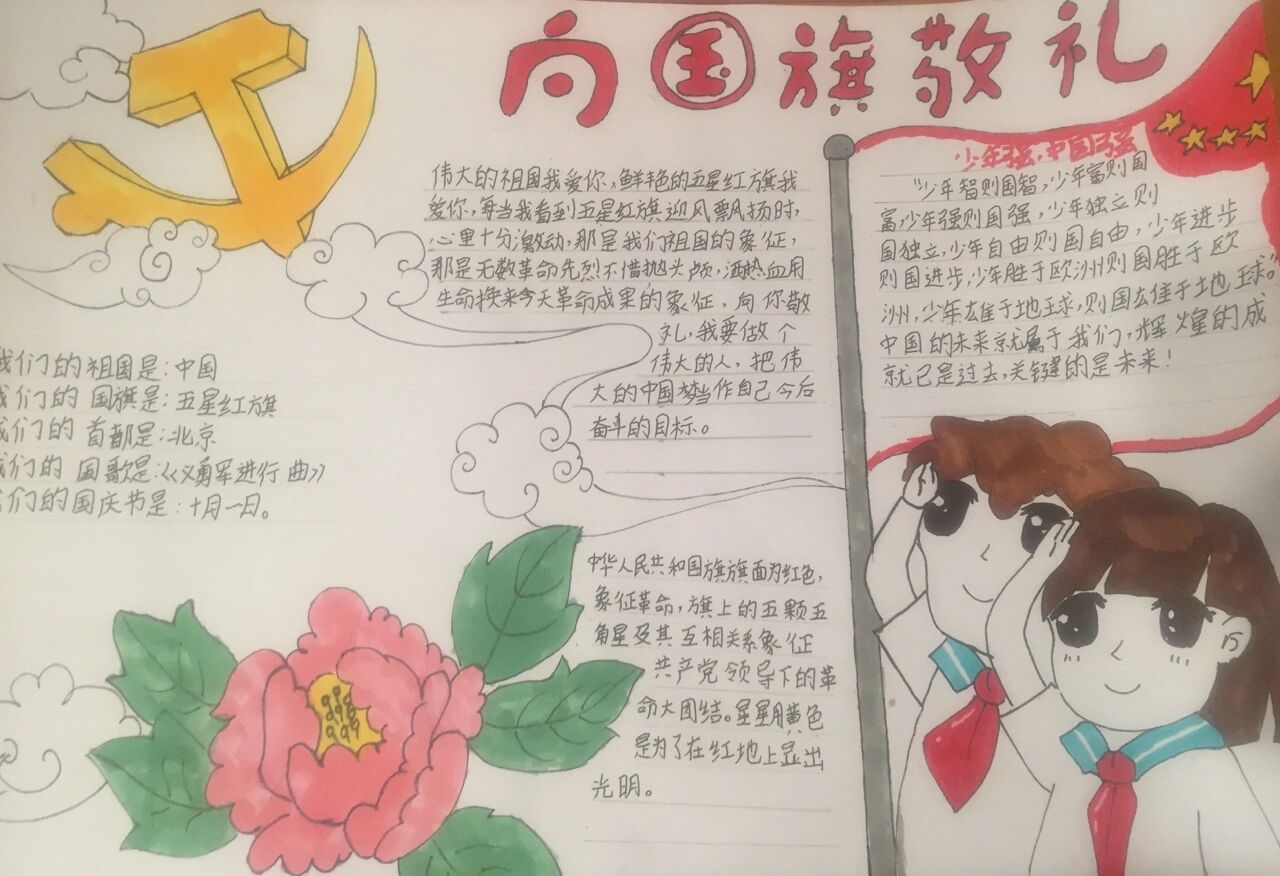 向国旗敬礼
伟大的祖国我爱你,鲜艳的五星红旗我
爱你,每当我看到五星红旗迎风飘扬时,
心里十分激动,那是我们祖国的象征,
那是无数革命先烈不借抛头颅,洒热血用
生命换来今天革命成果的象征,向你敬
礼,我要做个
伟大的人,把伟
大的中国梦当作自己今后
奋斗的目标。
少年强,中国强
“少年智则国智,少年富则国
富,少年强则国强,少年独立则
国独立,少年自由则国自由,少年进步
则国进步,少年胜于欧洲则国胜于欧
洲,少年雄于地球,则国雄于地球。”
中国的未来就属于我们,辉煌的成
就已是过去,关键的是未来!
我们的祖国是:中国
我们的国旗是:五星红旗
我们的首都是:北京
我们的国歌是:《义勇军进行曲》
我们的国庆节是:十月一日。
中华人民共和国旗旗面为红色,
象征革命,旗上的五颗五
角星及其互相关系象征
共产党领导下的革
命大团结。星星用黄色
是为了在红地上显出
光明。